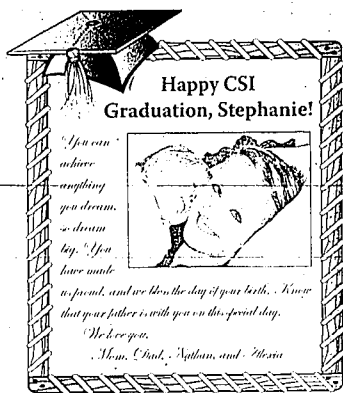 Happy CSI
Graduation, Stephanie!
You can
achieve
anything
you dream,
so dream
big. You
have made
us proud, and we bless the day of your birth. Know
that your father is with you on this special day.
We love you,
Mom, Dad, Nathan, and Alexia